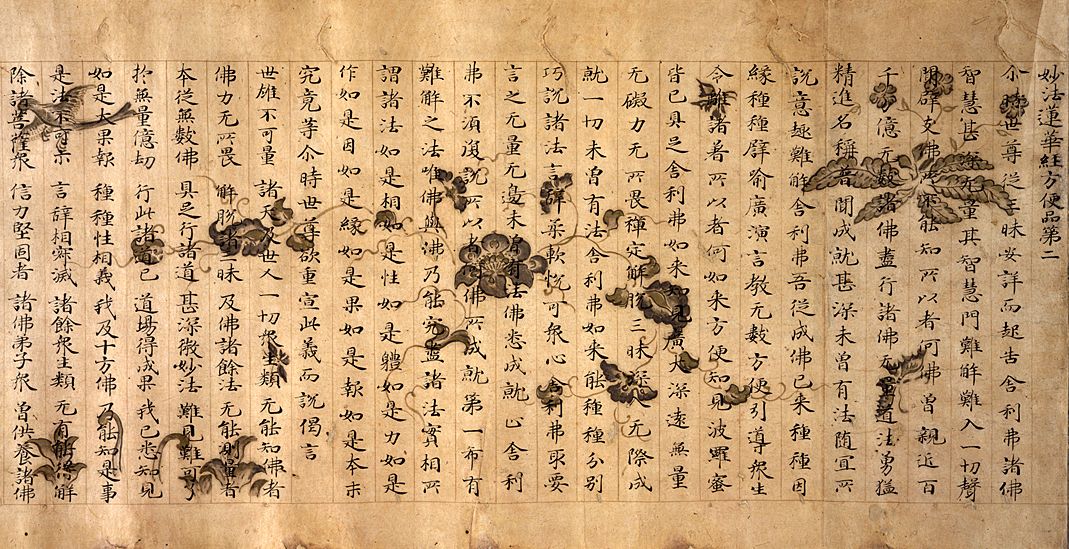 妙法蓮華経方便品第二
尒時世尊従三昧安詳而起告舍利弗諸佛
智慧甚深无量其智慧門難解難入一切聲
聞辟支佛所不能知所以者何佛曾親近百
千万億无數諸佛盡行諸佛无量道法勇猛
精進名稱普聞成就甚深未曾有法随冝所
說意趣難解舍利弗吾従成佛已来種種因
縁種種譬喻廣演言教无數方便引導衆生
令離諸著所以者何如来方便知見波羅蜜
皆已具足舍利弗如来知見廣大深遠無量
无礙力无所畏禪定解脫三昧深入无際成
就一切未曾有法舍利弗如来能種種分別
巧說諸法言辭柔軟悅可衆心舍利弗取要
言之无量无邊未曾有法佛悉成就止舍利
弗不須復說所以者何佛所成就第一希有
難解之法唯佛與佛乃能究盡諸法實相所
謂諸法如是相如是性如是體如是力如是
作如是因如是縁如是果如是報如是本末
究竟等尒時世尊欲重宣此義而說偈言
世雄不可量 諸天及世人 一切衆生類 无能知佛者
佛力无所畏 解脫諸三昧 及佛諸餘法 无能測量者
本従無數佛 具足行諸道 甚深微妙法 難見難可了
於無量億劫 行此諸道已 道場得成果 我已悉知見
如是大果報 種種性相義 我及十方佛 乃能知是事
是法不可示 言辭相寂滅 諸餘衆生類 无有能得解
除諸菩薩衆 信力堅固者 諸佛弟子衆 曾供養諸佛